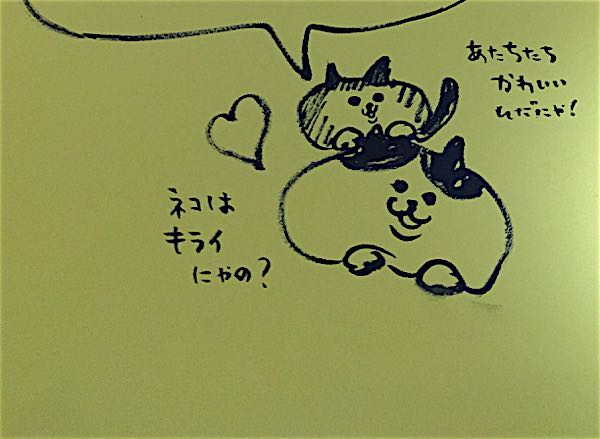 あたちたち
かわいい
んだにゃ!
ネコは
キライ
にゃの?